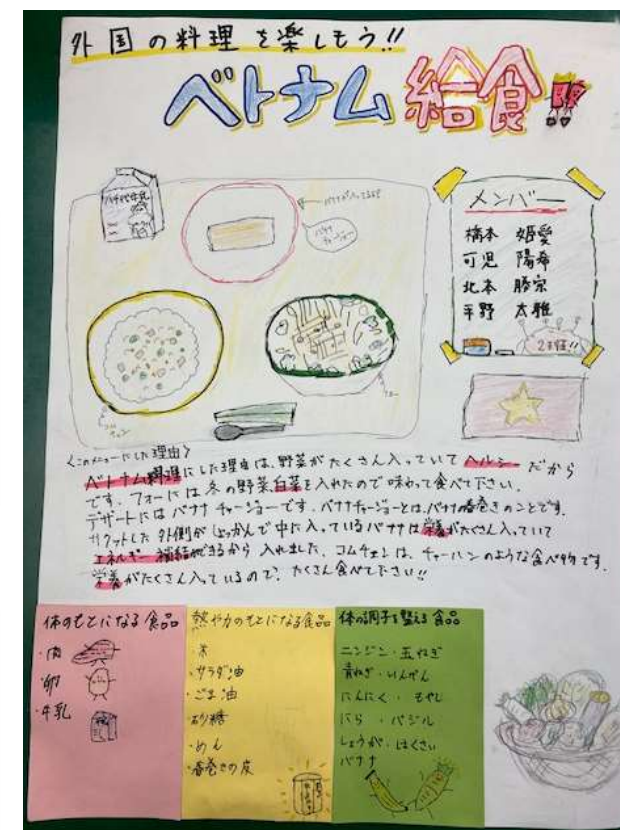 外国の料理を楽しもう!!
ベトナム給食!!
牛乳
バナナが入ってるよ
バナナ
チャージョー
メンバー
橋本 姫愛
可児 陽希
北本 勝宗
平野 太雅
2の1!!
コム
チェン
フォー
〈このメニューにした理由〉
ベトナム料理にした理由は、野菜がたくさん入っていてヘルシーだから
です。フォーには冬の野菜白菜を入れたので味わって食べて下さい。
デザートにはバナナチャージョーです。バナナチャージョーとは、バナナの春巻きのことです。
サクットした外側が
中に入っているバナナは栄養がたくさん入っていて
エネルギー補給ができるから入れました。コムチェンは、チャーハンのような食べ物です。
栄養がたくさん入っているので、たくさん食べて下さい!!
体のもとになる食品
・肉
・卵
・牛乳
熱や力のもとになる食品
・米
・サラダ油
・ごま油
・砂糖
・めん
・春巻きの皮
体の調子を整える食品
ニンジン・玉ねぎ
青ねぎ・いんげん
にんにく・もやし
にら・バジル
しょうが・はくさい
バナナ